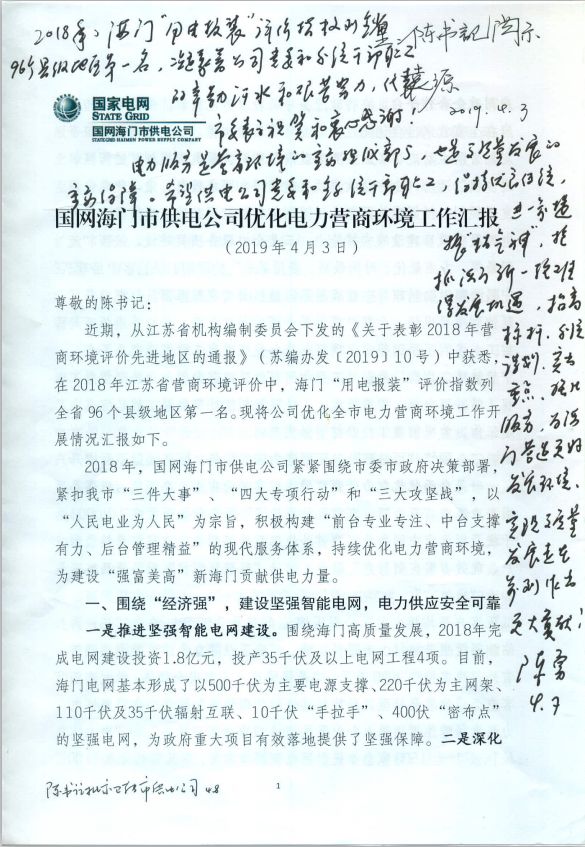 2018年，海门“用电报装”评价指数列全省
陈书记阅示
96个县级地区第一名，凝聚着公司党委和全流干部职工
的辛勤汗水和艰苦努力，代表
源
2019.4.3
市委表示祝贺和衷心感谢！
电力服务是营商环境的重要组成部分，也是高质量发展的
重要保障。希望供电公司党委和全体干部职工，保持优良传统，
国家电网
STATE GRID
国网海门市供电公司
STATEGRID HAIMEN POWER SUPPLY COMPANY
国网海门市供电公司优化电力营商环境工作汇报
（2019年4月3日）
进一步
发展机遇，抢高
标杆，
谋划，突出
重点，强化
服务，为海
门营造更好
发展环境、
实现高质量
发展走在
前列作出
更大贡献！
陈勇
4.7
尊敬的陈书记：
近期，从江苏省机构编制委员会下发的《关于表彰2018年营
商环境评价先进地区的通报》（苏编办发〔2019〕10号）中获悉，
在2018年江苏省营商环境评价中，海门“用电报装”评价指数列
全省96个县级地区第一名。现将公司优化全市电力营商环境工作开
展情况汇报如下。
2018年，国网海门市供电公司紧紧围绕市委市政府决策部署，
紧扣我市“三件大事”、“四大专项行动”和“三大攻坚战”，以
“人民电业为人民”为宗旨，积极构建“前台专业专注、中台支撑
有力、后台管理精益”的现代服务体系，持续优化电力营商环境，
为建设“强富美高”新海门贡献供电力量。
一、围绕“经济强”，建设坚强智能电网，电力供应安全可靠
一是推进坚强智能电网建设。围绕海门高质量发展，2018年完
成电网建设投资1.8亿元，投产35千伏及以上电网工程4项。目前，
海门电网基本形成了以500千伏为主要电源支撑、220千伏为主网架、
110千伏及35千伏辐射互联、10千伏“手拉手”、400伏“密布点”
的坚强电网，为政府重大项目有效落地提供了坚强保障。二是深化
陈书记批示已转市供电公司 4.8
1